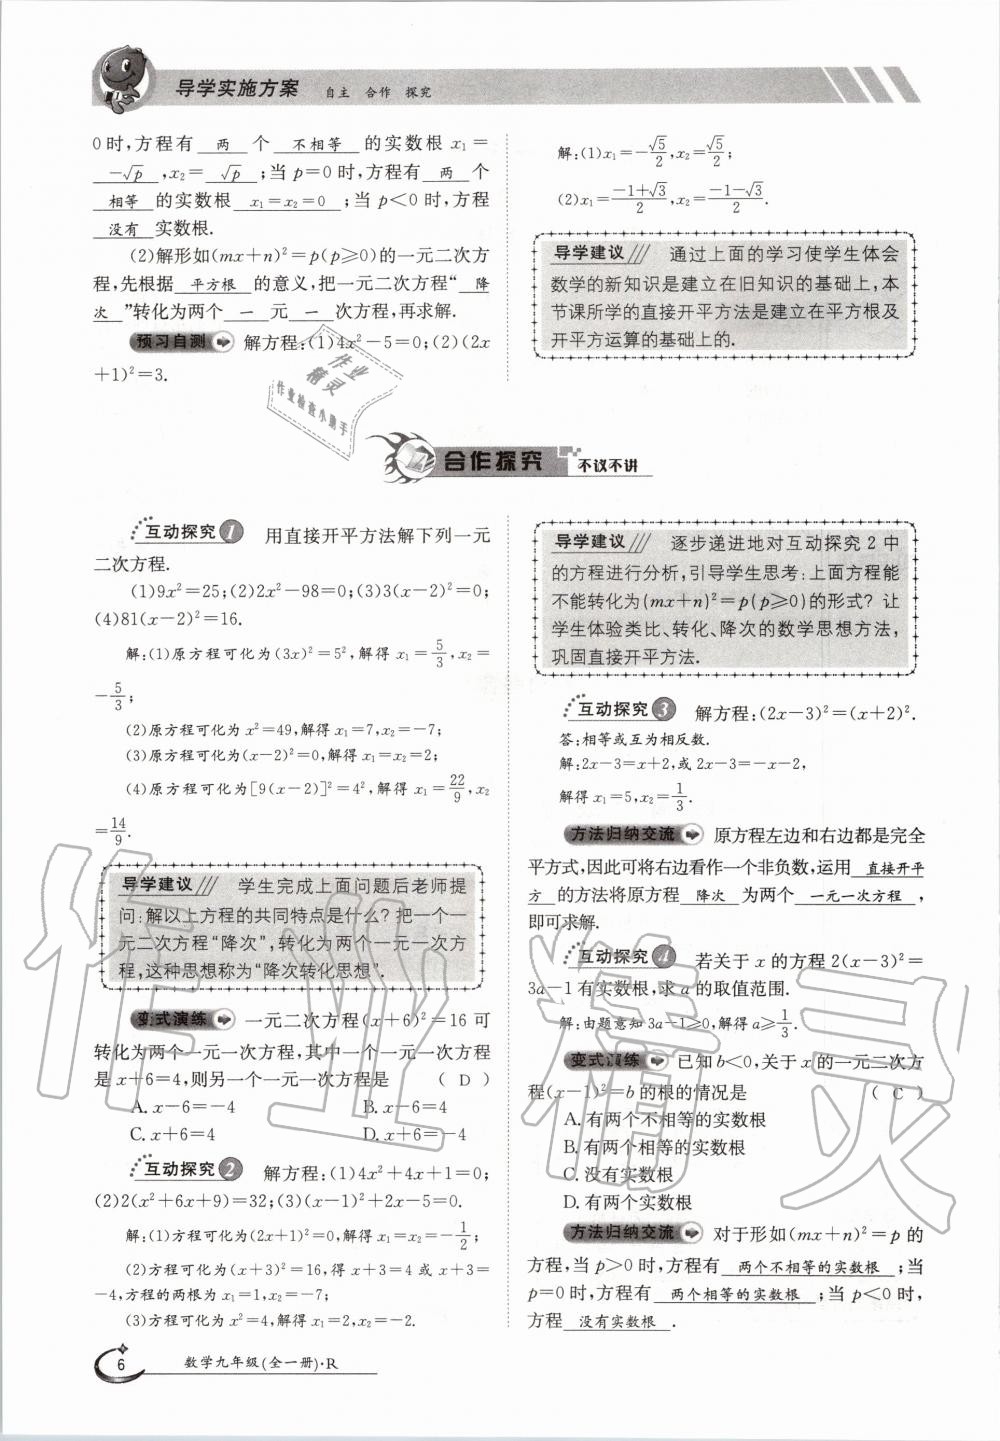 导学实施方案 自主 合作 探究
0时,方程有 两 个 不相等 的实数根 x₁=
-√p ,x₂= √p ;当 p=0 时,方程有 两 个
相等 的实数根 x₁=x₂=0 ;当 p<0 时,方程
没有 实数根.
(2)解形如(mx+n)²=p(p≥0)的一元二次方
程,先根据 平方根 的意义,把一元二次方程“ 降
次 ”转化为两个 一 元 一 次方程,再求解.
预习自测 解方程:(1)4x²-5=0;(2)(2x
+1)²=3.
解:(1)x₁=-√5/2,x₂=√5/2;
(2)x₁=(-1+√3)/2,x₂=(-1-√3)/2.
导学建议 通过上面的学习使学生体会
数学的新知识是建立在旧知识的基础上,本
节课所学的直接开平方法是建立在平方根及
开平方运算的基础上的.
作业
精灵
作业检查小助手
合作探究 不议不讲
互动探究1 用直接开平方法解下列一元
二次方程.
(1)9x²=25;(2)2x²-98=0;(3)3(x-2)²=0;
(4)81(x-2)²=16.
解:(1)原方程可化为(3x)²=5²,解得 x₁=5/3,x₂=
-5/3;
(2)原方程可化为 x²=49,解得 x₁=7,x₂=-7;
(3)原方程可化为(x-2)²=0,解得 x₁=x₂=2;
(4)原方程可化为[9(x-2)]²=4²,解得 x₁=22/9,x₂
=14/9.
导学建议 学生完成上面问题后老师提
问:解以上方程的共同特点是什么?把一个一
元二次方程“降次”,转化为两个一元一次方
程,这种思想称为“降次转化思想”.
变式演练 一元二次方程(x+6)²=16 可
转化为两个一元一次方程,其中一个一元一次方程
是 x+6=4,则另一个一元一次方程是 ( D )
A.x-6=-4 B.x-6=4
C.x+6=4 D.x+6=-4
互动探究2 解方程:(1)4x²+4x+1=0;
(2)2(x²+6x+9)=32;(3)(x-1)²+2x-5=0.
解:(1)方程可化为(2x+1)²=0,解得 x₁=x₂=-1/2;
(2)方程可化为(x+3)²=16,得 x+3=4 或 x+3=
-4,方程的两根为 x₁=1,x₂=-7;
(3)方程可化为 x²=4,解得 x₁=2,x₂=-2.
导学建议 逐步递进地对互动探究 2 中
的方程进行分析,引导学生思考:上面方程能
不能转化为(mx+n)²=p(p≥0)的形式?让
学生体验类比、转化、降次的数学思想方法,
巩固直接开平方法.
互动探究3 解方程:(2x-3)²=(x+2)².
答:相等或互为相反数.
解:2x-3=x+2,或 2x-3=-x-2,
解得 x₁=5,x₂=1/3.
方法归纳交流 原方程左边和右边都是完全
平方式,因此可将右边看作一个非负数,运用 直接开平
方 的方法将原方程 降次 为两个 一元一次方程 ,
即可求解.
互动探究4 若关于 x 的方程 2(x-3)²=
3a-1 有实数根,求 a 的取值范围.
解:由题意知 3a-1≥0,解得 a≥1/3.
变式演练 已知 b<0,关于 x 的一元二次方
程(x-1)²=b 的根的情况是 ( C )
A.有两个不相等的实数根
B.有两个相等的实数根
C.没有实数根
D.有两个实数根
方法归纳交流 对于形如(mx+n)²=p 的
方程,当 p>0 时,方程有 两个不相等的实数根 ;当
p=0 时,方程有 两个相等的实数根 ;当 p<0 时,
方程 没有实数根 .
作业精灵
6 数学九年级(全一册)·R